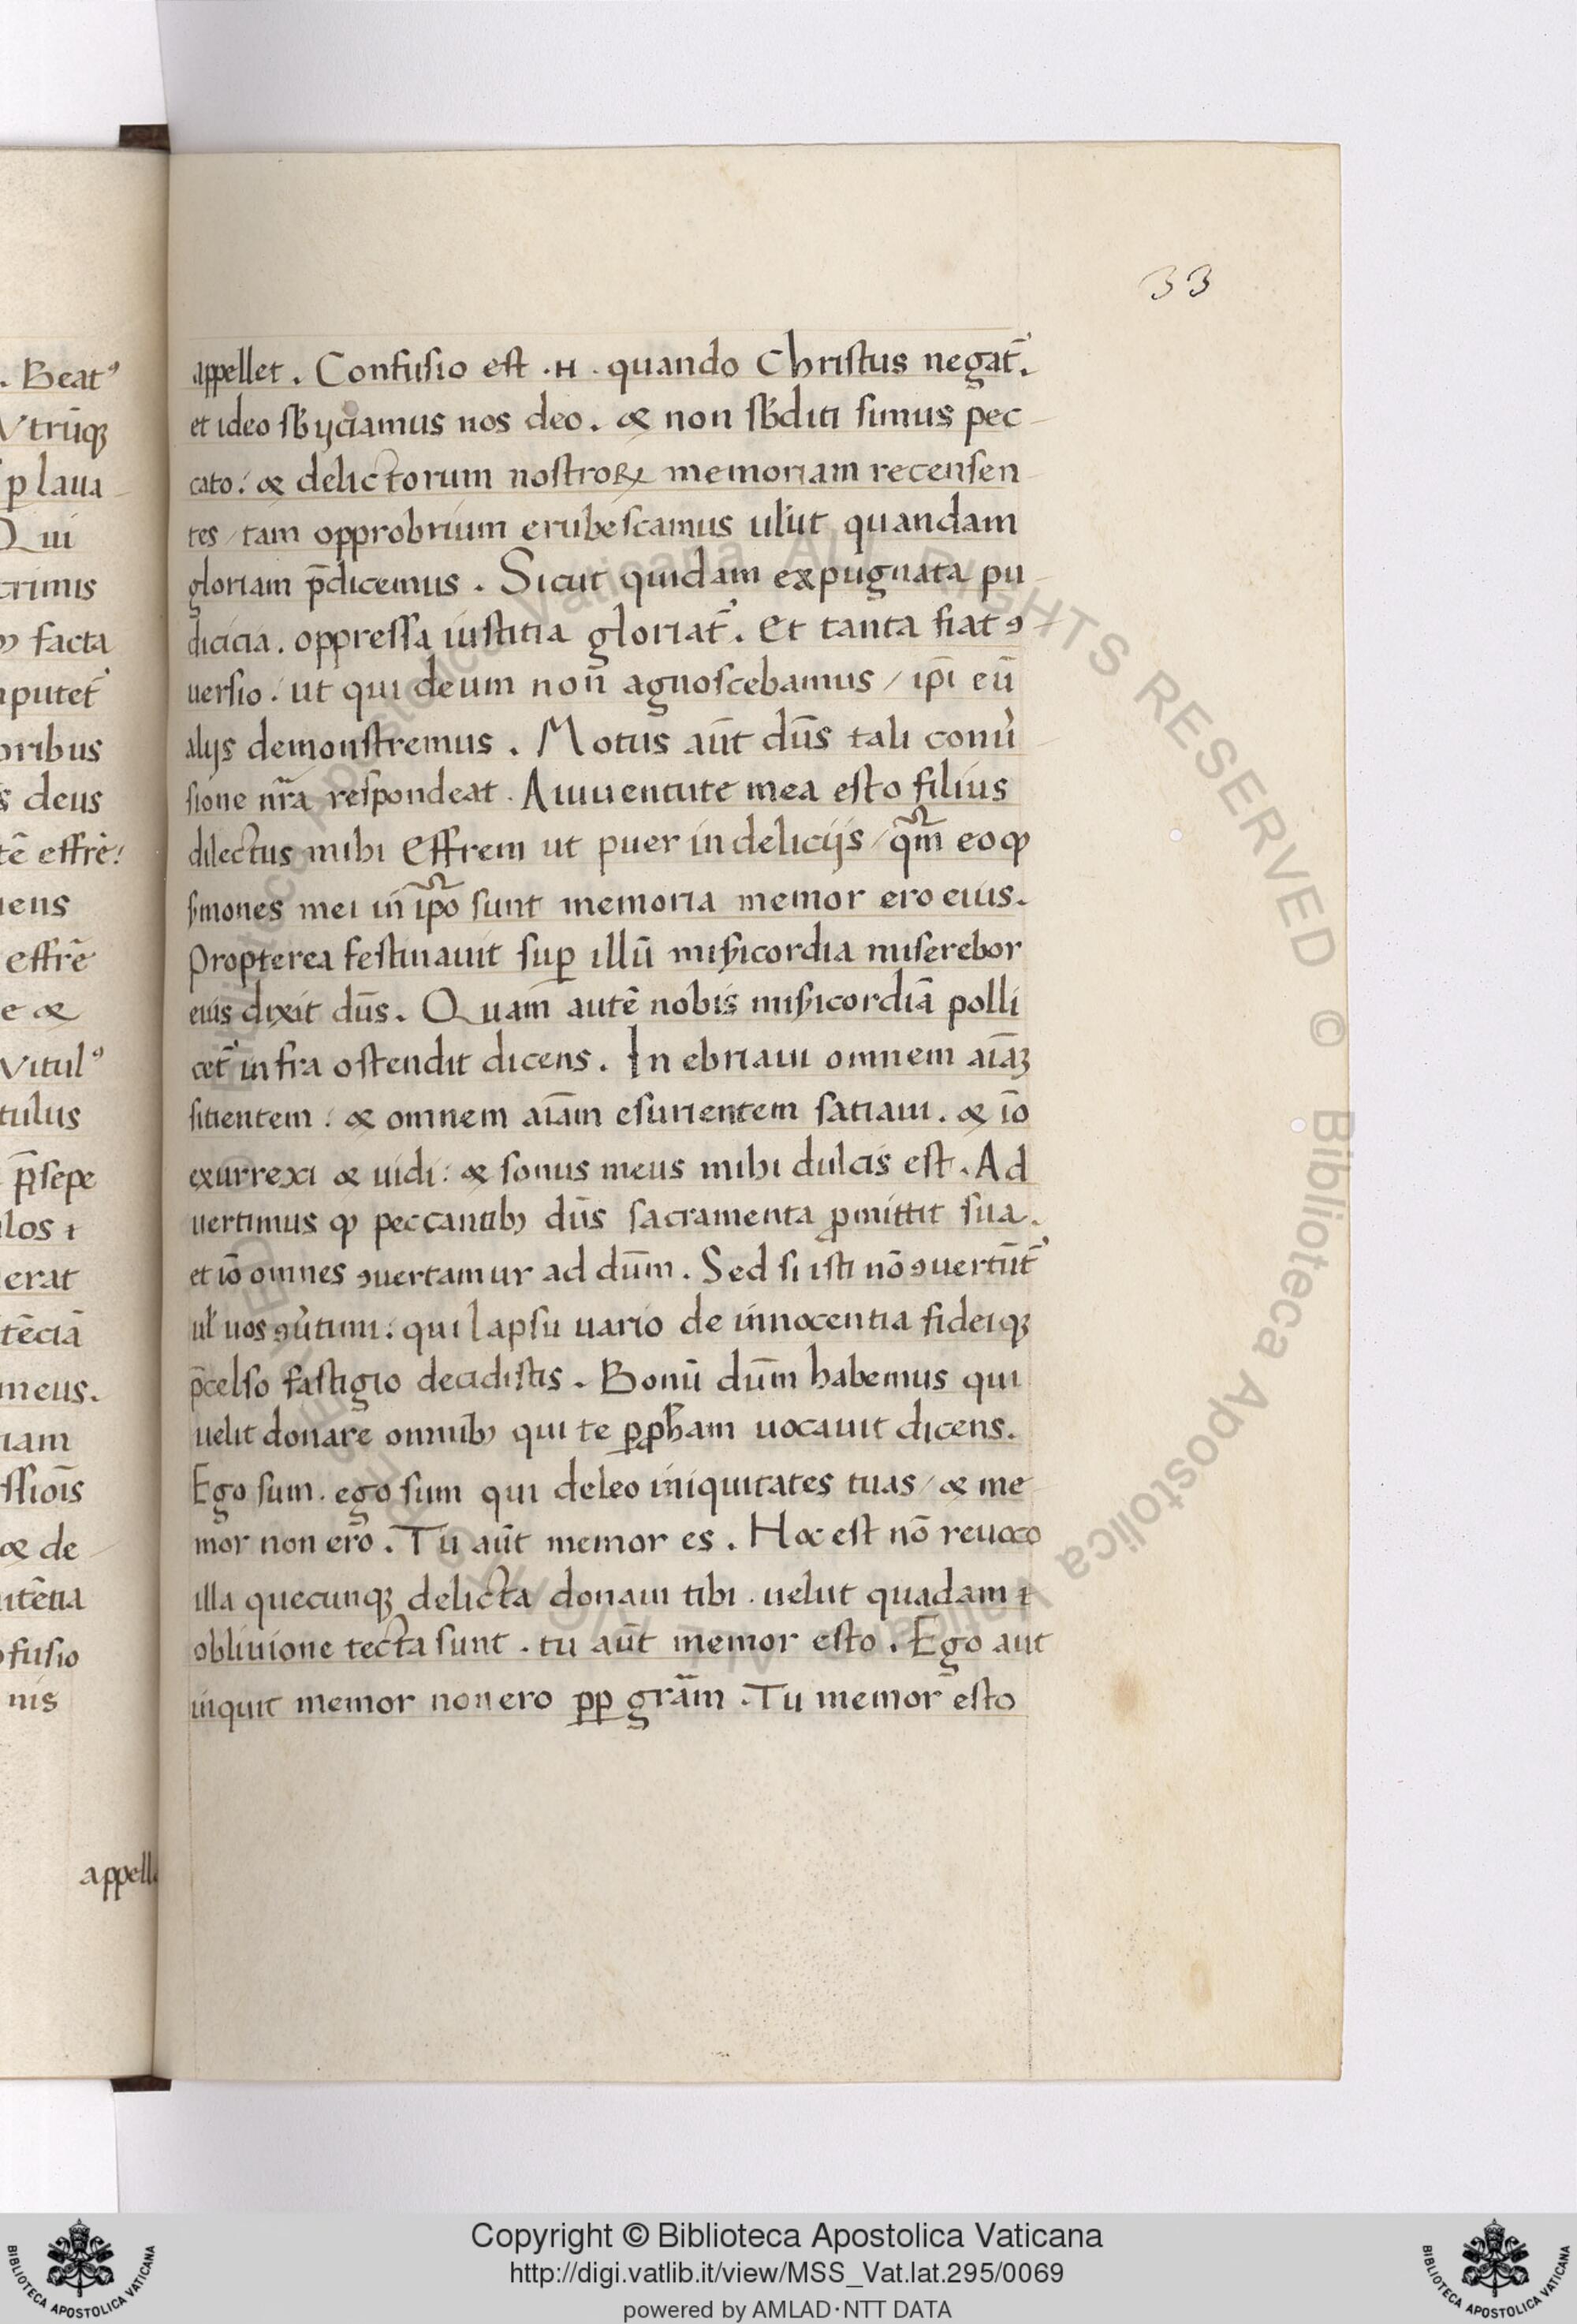 33
. Beat⁹
Vtrūqꝫ
ꝑ laua
Qui
crimis
facta
putet̃
oribus
deus
tē effrē:
iens
effrē
e &
Vitul⁹
tulus
p̄sepe
los ⁊
erat
tēciā
meus.
iam
ssiōis
& de
itētia
fusio
nis
appell
appellet . Confusio est .H. quando Christus negat̃.
et ideo sb̄ yciamus nos deo . & non sb̄diti simus pec
cato: & delictorum nostroꝝ memoriam recensen
tes / tam opprobrium erubescamus ul'ut quandam
gloriam p̄dicemus . Sicut quidam expugnata pu
dicicia . oppressa iustitia gloriat̃ . Et tanta fiat ꝯ
uersio: ut qui deum non agnoscebamus / ip̄i eū
alijs demonstremus . Motus aūt dūs tali conu̓
sione nr̄a respondeat . A iuuentute mea esto filius
dilectus mihi Effrem ut puer in delicijs / qm̃ eo ꝙ
s̓mones mei in ip̃o sunt memoria memor ero eius.
Propterea festinauit suꝑ illū mis̓icordia miserebor
eius dixit dn̄s . Quam autē nobis mis̓icordiā polli
cet̃ infra ostendit dicens . In ebriaui omnem aīaꝫ
sitientem: & omnem aīam esurientem satiaui . & iō
exurrexi & uidi: & sonus meus mihi dulcis est . Ad
uertimus ꝙ peccantibꝫ dn̄s sacramenta ꝓmittit sua.
et iō omnes ꝯuertamur ad dūm . Sed si isti nō ꝯuertūt̃
ul' uos ꝯu̓timi: qui lapsu uario de innocentia fideiqꝫ
p̄celso fastigio decidistis . Bonū dūm habemus qui
uelit donare omnibꝫ qui te ꝑ ꝓph̄am uocauit dicens.
Ego sum . ego sum qui deleo iniquitates tuas / & me
mor non ero . Tu aūt memor es . Hoc est nō reuoco
illa quecunqꝫ delicta donaui tibi . uelut quadam ⁊
obliuione tecta sunt . tu aūt memor esto . Ego aut
inquit memor non ero ꝓꝑ grām . Tu memor esto
ALL RIGHTS RESERVED © Biblioteca Apostolica Vaticana
Copyright © Biblioteca Apostolica Vaticana
http://digi.vatlib.it/view/MSS_Vat.lat.295/0069
powered by AMLAD·NTT DATA
BIBLIOTECA APOSTOLICA VATICANA
BIBLIOTECA APOSTOLICA VATICANA